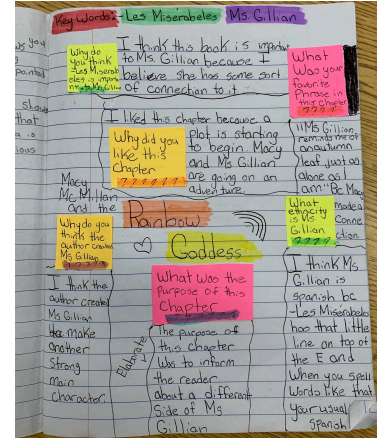 Key Words: - Les Misérabeles Ms. Gillian
Why do
you think
-Les Miserab
eles is impor
nt to Ms Gillian
I think this book is important
to Ms. Gillian because I
believe she has some sort
of connection to it
What
Was your
favorite
Phrase in
this Chapter
????
I liked this chapter because a
plot is starting
to begin. Macy
and Ms Gillian
are going on an
adventure.
Why did you
like this
Chapter
???????
"Ms Gillian
reminds me of
an autumn
leaf just as
alone as I
am" Bc Macy
made a
Conne
ction
Macy
McMillan
and the
Rainbow
Goddess
What
etnicity
is Ms.
Gillian
????
Why do you
think the
author created
Ms Gillian
I think the
author created
Ms Gillian
make
another
strong
main
character.
What was the
Purpose of this
Chapter
Elaborate
The purpose of
this chapter
was to inform
the reader
about a different
side of Ms
Gillian
I think Ms
Gillian is
spanish bc
-Les Misérabeles
has that little
line on top of
the E and
When you spell
Words like that
your usual
Spanish